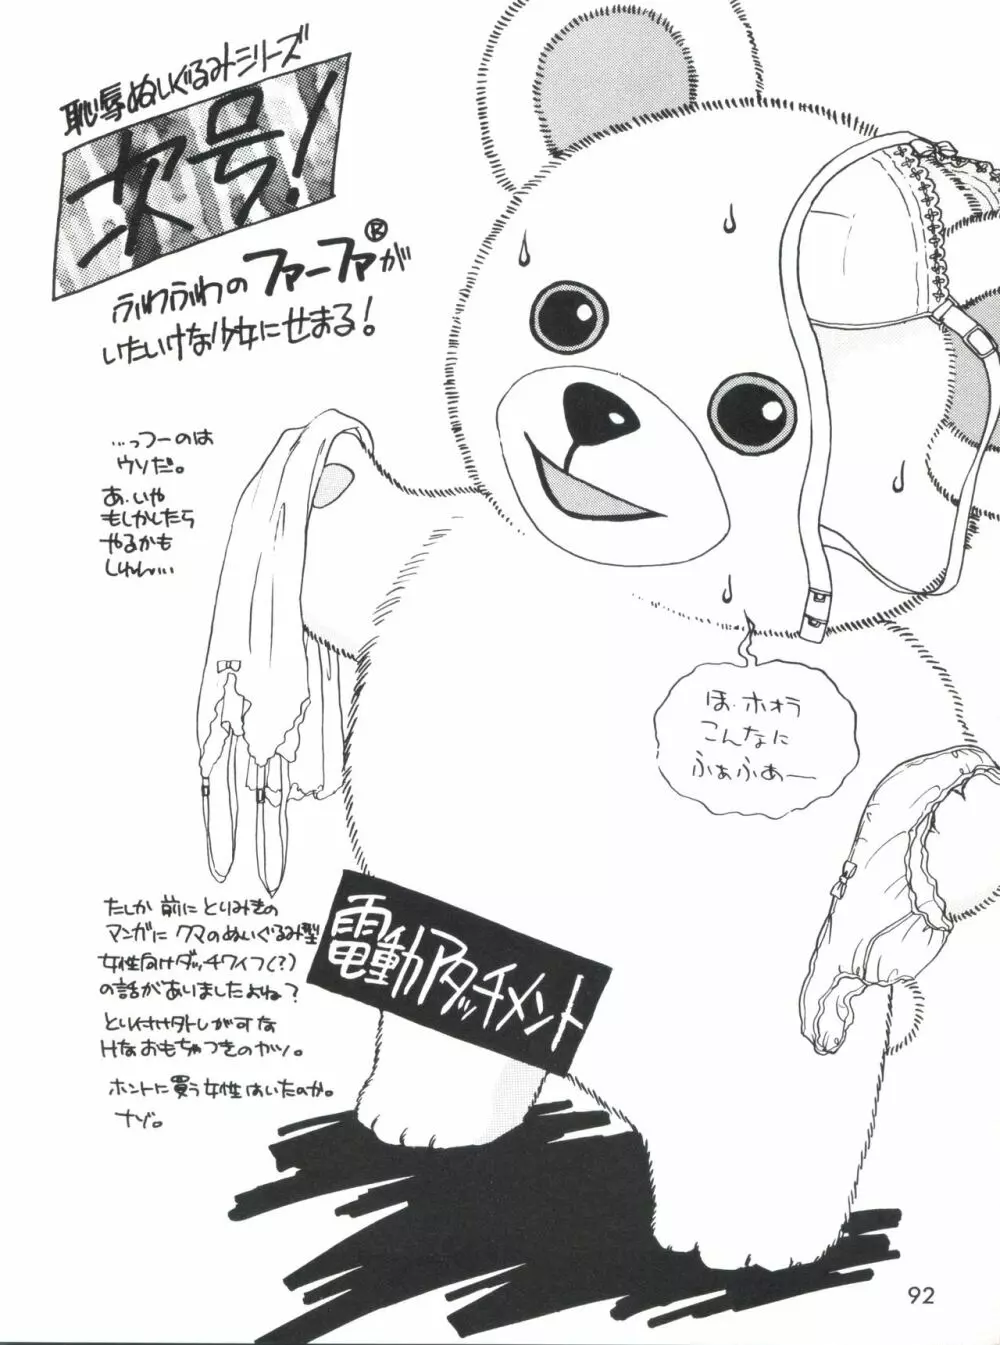 恥辱ぬいぐるみシリーズ
次号!
ふわふわのファーファ®が
いたいけな少女にせまる!
…っつーのは
ウソだ。
あ、いや
もしかしたら
やるかも
しれん…
ほ、ホォラ
こんなに
ふぁふぁー
たしか 前に とりみきの
マンガに クマのぬいぐるみ型
女性向けダッチワイフ(?)
の話がありましたよね?
とり付けタトしが可な
Hな おもちゃつきのヤツ。
ホントに買う女性はいたのか。
ナゾ。
電動アタッチメント
92